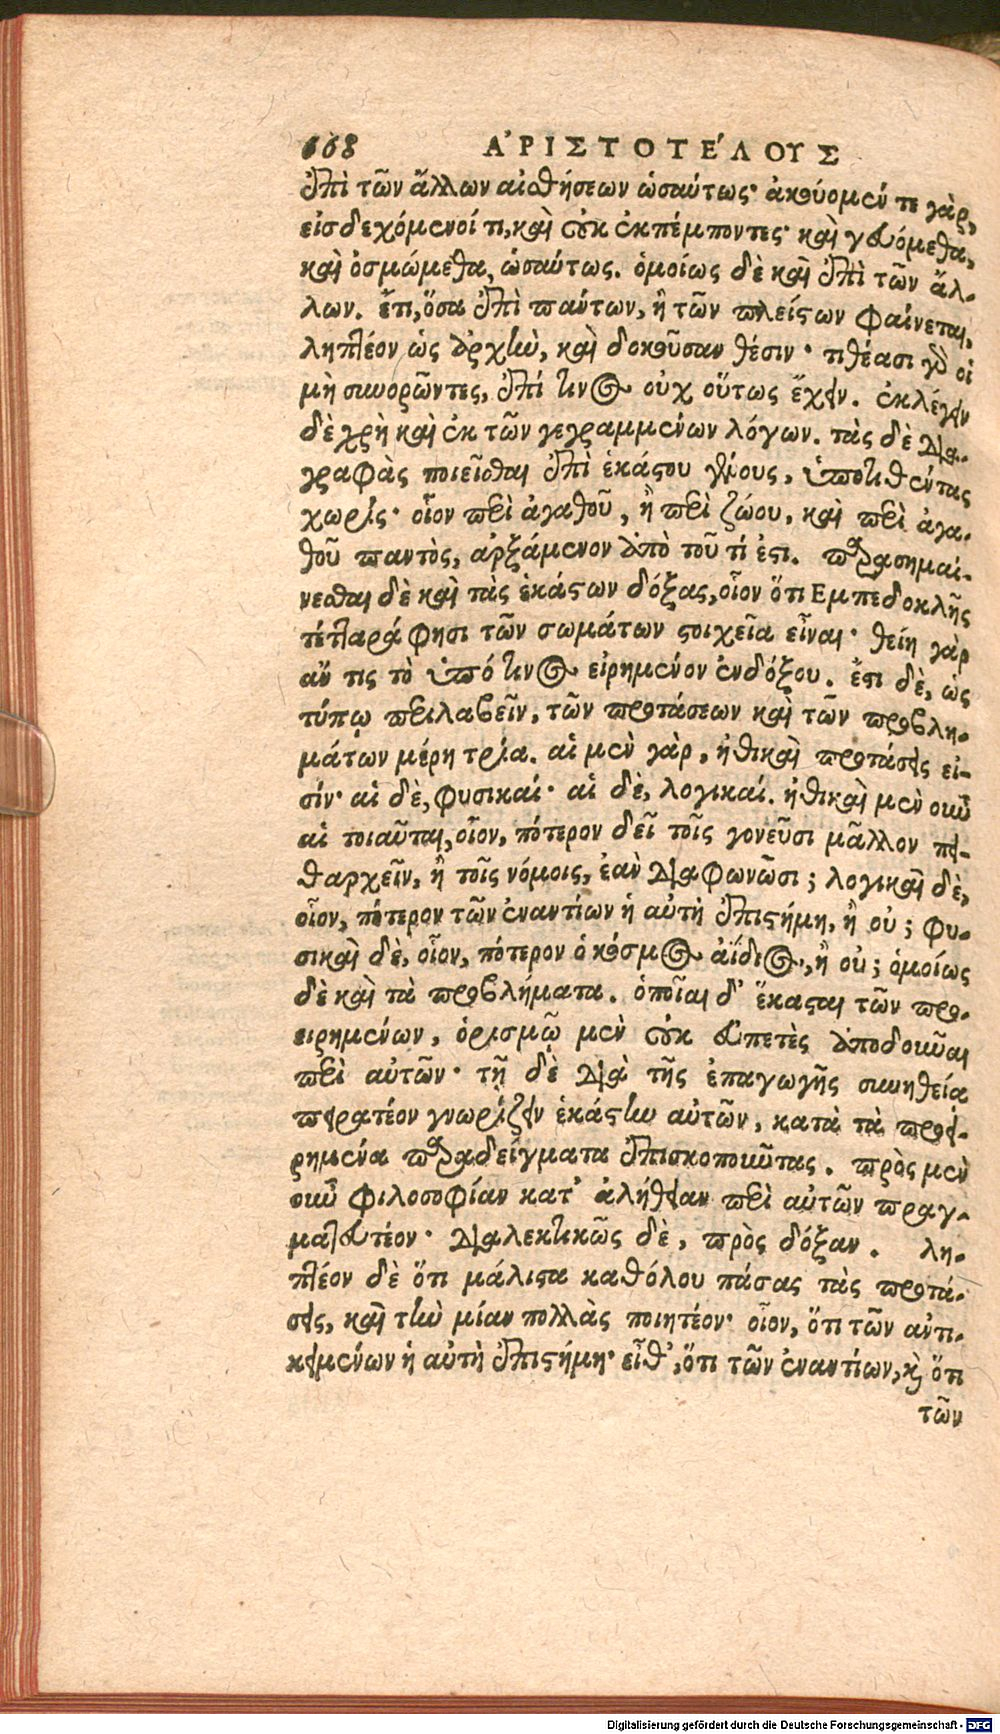 668 ἈΡΙΣΤΟΤΈΛΟΥΣ
ἐπὶ τῶν ἄλλων αἰσθήσεων ὡσαύτως· ἀκούομέν τε γὰρ,
εἰσδεχόμενοί τι, καὶ οὐκ ἐκπέμποντες· καὶ γευόμεθα,
καὶ ὀσμώμεθα, ὡσαύτως. ὁμοίως δὲ καὶ ἐπὶ τῶν ἄλ-
λων. ἔτι, ὅσα ἐπὶ πάντων, ἢ τῶν πλείστων φαίνεται,
ληπτέον ὡς ἀρχὴν, καὶ δοκοῦσαν θέσιν· τιθέασι γὸ οἱ
μὴ συνορῶντες, ἐπί τινος οὐχ οὕτως ἔχειν. ἐκλέγειν
δὲ χρὴ καὶ ἐκ τῶν γεγραμμένων λόγων. τὰς δὲ δια-
γραφὰς ποιεῖσθαι ἐπὶ ἑκάστου γένους, ὑποτιθέντας
χωρίς· οἷον περὶ ἀγαθοῦ, ἢ περὶ ζώου, καὶ περὶ ἀγα-
θοῦ παντὸς, ἀρξάμενον ἀπὸ τοῦ τί ἐστι. παρασημαί-
νεσθαι δὲ καὶ τὰς ἑκάστων δόξας, οἷον ὅτι Εμπεδοκλῆς
τέτταρά φησι τῶν σωμάτων στοιχεῖα εἶναι· θείη γὰρ
ἄν τις τὸ ὑπό τινος εἰρημένον ἐνδόξου. ἔστι δὲ, ὡς
τύπῳ περιλαβεῖν, τῶν προτάσεων καὶ τῶν προβλη-
μάτων μέρη τρία. αἱ μὲν γὰρ, ἠθικαὶ προτάσεις εἰ-
σίν· αἱ δὲ, φυσικαί· αἱ δὲ, λογικαί. ἠθικαὶ μὲν οὖν
αἱ τοιαῦται, οἷον, πότερον δεῖ τοῖς γονεῦσι μᾶλλον πει-
θαρχεῖν, ἢ τοῖς νόμοις, ἐὰν διαφωνῶσι; λογικαὶ δὲ,
οἷον, πότερον τῶν ἐναντίων ἡ αὐτὴ ἐπιστήμη, ἢ οὐ; φυ-
σικαὶ δὲ, οἷον, πότερον ὁ κόσμος ἀΐδιος, ἢ οὐ; ὁμοίως
δὲ καὶ τὰ προβλήματα. ὁποῖαι δ' ἕκασται τῶν προ-
ειρημένων, ὁρισμῷ μὲν οὐκ εὐπετὲς ἀποδοῦναι
περὶ αὐτῶν· τῇ δὲ διὰ τῆς ἐπαγωγῆς συνηθείᾳ
πειρατέον γνωρίζειν ἑκάστην αὐτῶν, κατὰ τὰ προει-
ρημένα παραδείγματα ἐπισκοποῦντας. πρὸς μὲν
οὖν φιλοσοφίαν κατ' ἀλήθειαν περὶ αὐτῶν πραγ-
ματευτέον· διαλεκτικῶς δὲ, πρὸς δόξαν. λη-
πτέον δὲ ὅτι μάλιστα καθόλου πάσας τὰς προτά-
σεις, καὶ τὴν μίαν πολλὰς ποιητέον· οἷον, ὅτι τῶν ἀντι-
κειμένων ἡ αὐτὴ ἐπιστήμη· εἶθ', ὅτι τῶν ἐναντίων, κὶ ὅτι
τῶν
Digitalisierung gefördert durch die Deutsche Forschungsgemeinschaft - DFG